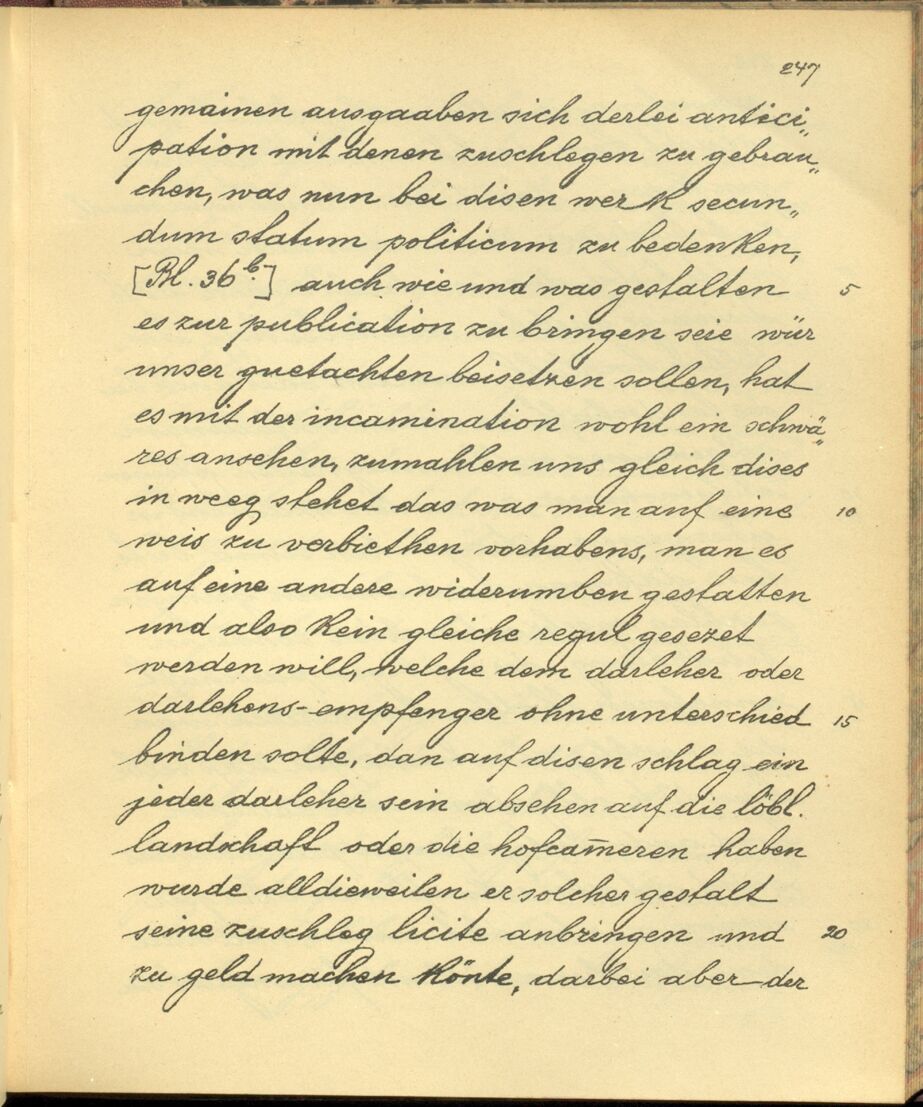 247
gemainen ausgaaben sich derlei antici„
pation mit denen zuschlegen zu gebrau„
chen, was nun bei disen werk secun„
dum statum politicum zu bedenken,
[Bl. 36 b.] auch wie und was gestalten 5
es zur publication zu bringen seie wür
unser guetachten beisetzen sollen, hat
es mit der incamination wohl ein schwä„
res ansehen, zumahlen uns gleich dises
in weeg stehet das was man auf eine 10
weis zu verbiethen vorhabens, man es
auf eine andere widerumben gestatten
und also kein gleiche regul gesezet
werden will, welche dem darleher oder
darlehens-empfenger ohne unterschied 15
binden solte, dan auf disen schlag ein
jeder darleher sein absehen auf die löbl.
landschaft oder die hofcam̄eren haben
wurde alldieweilen er solcher gestalt
seine zuschleg licite anbringen und 20
zu geld machen könte, darbei aber der